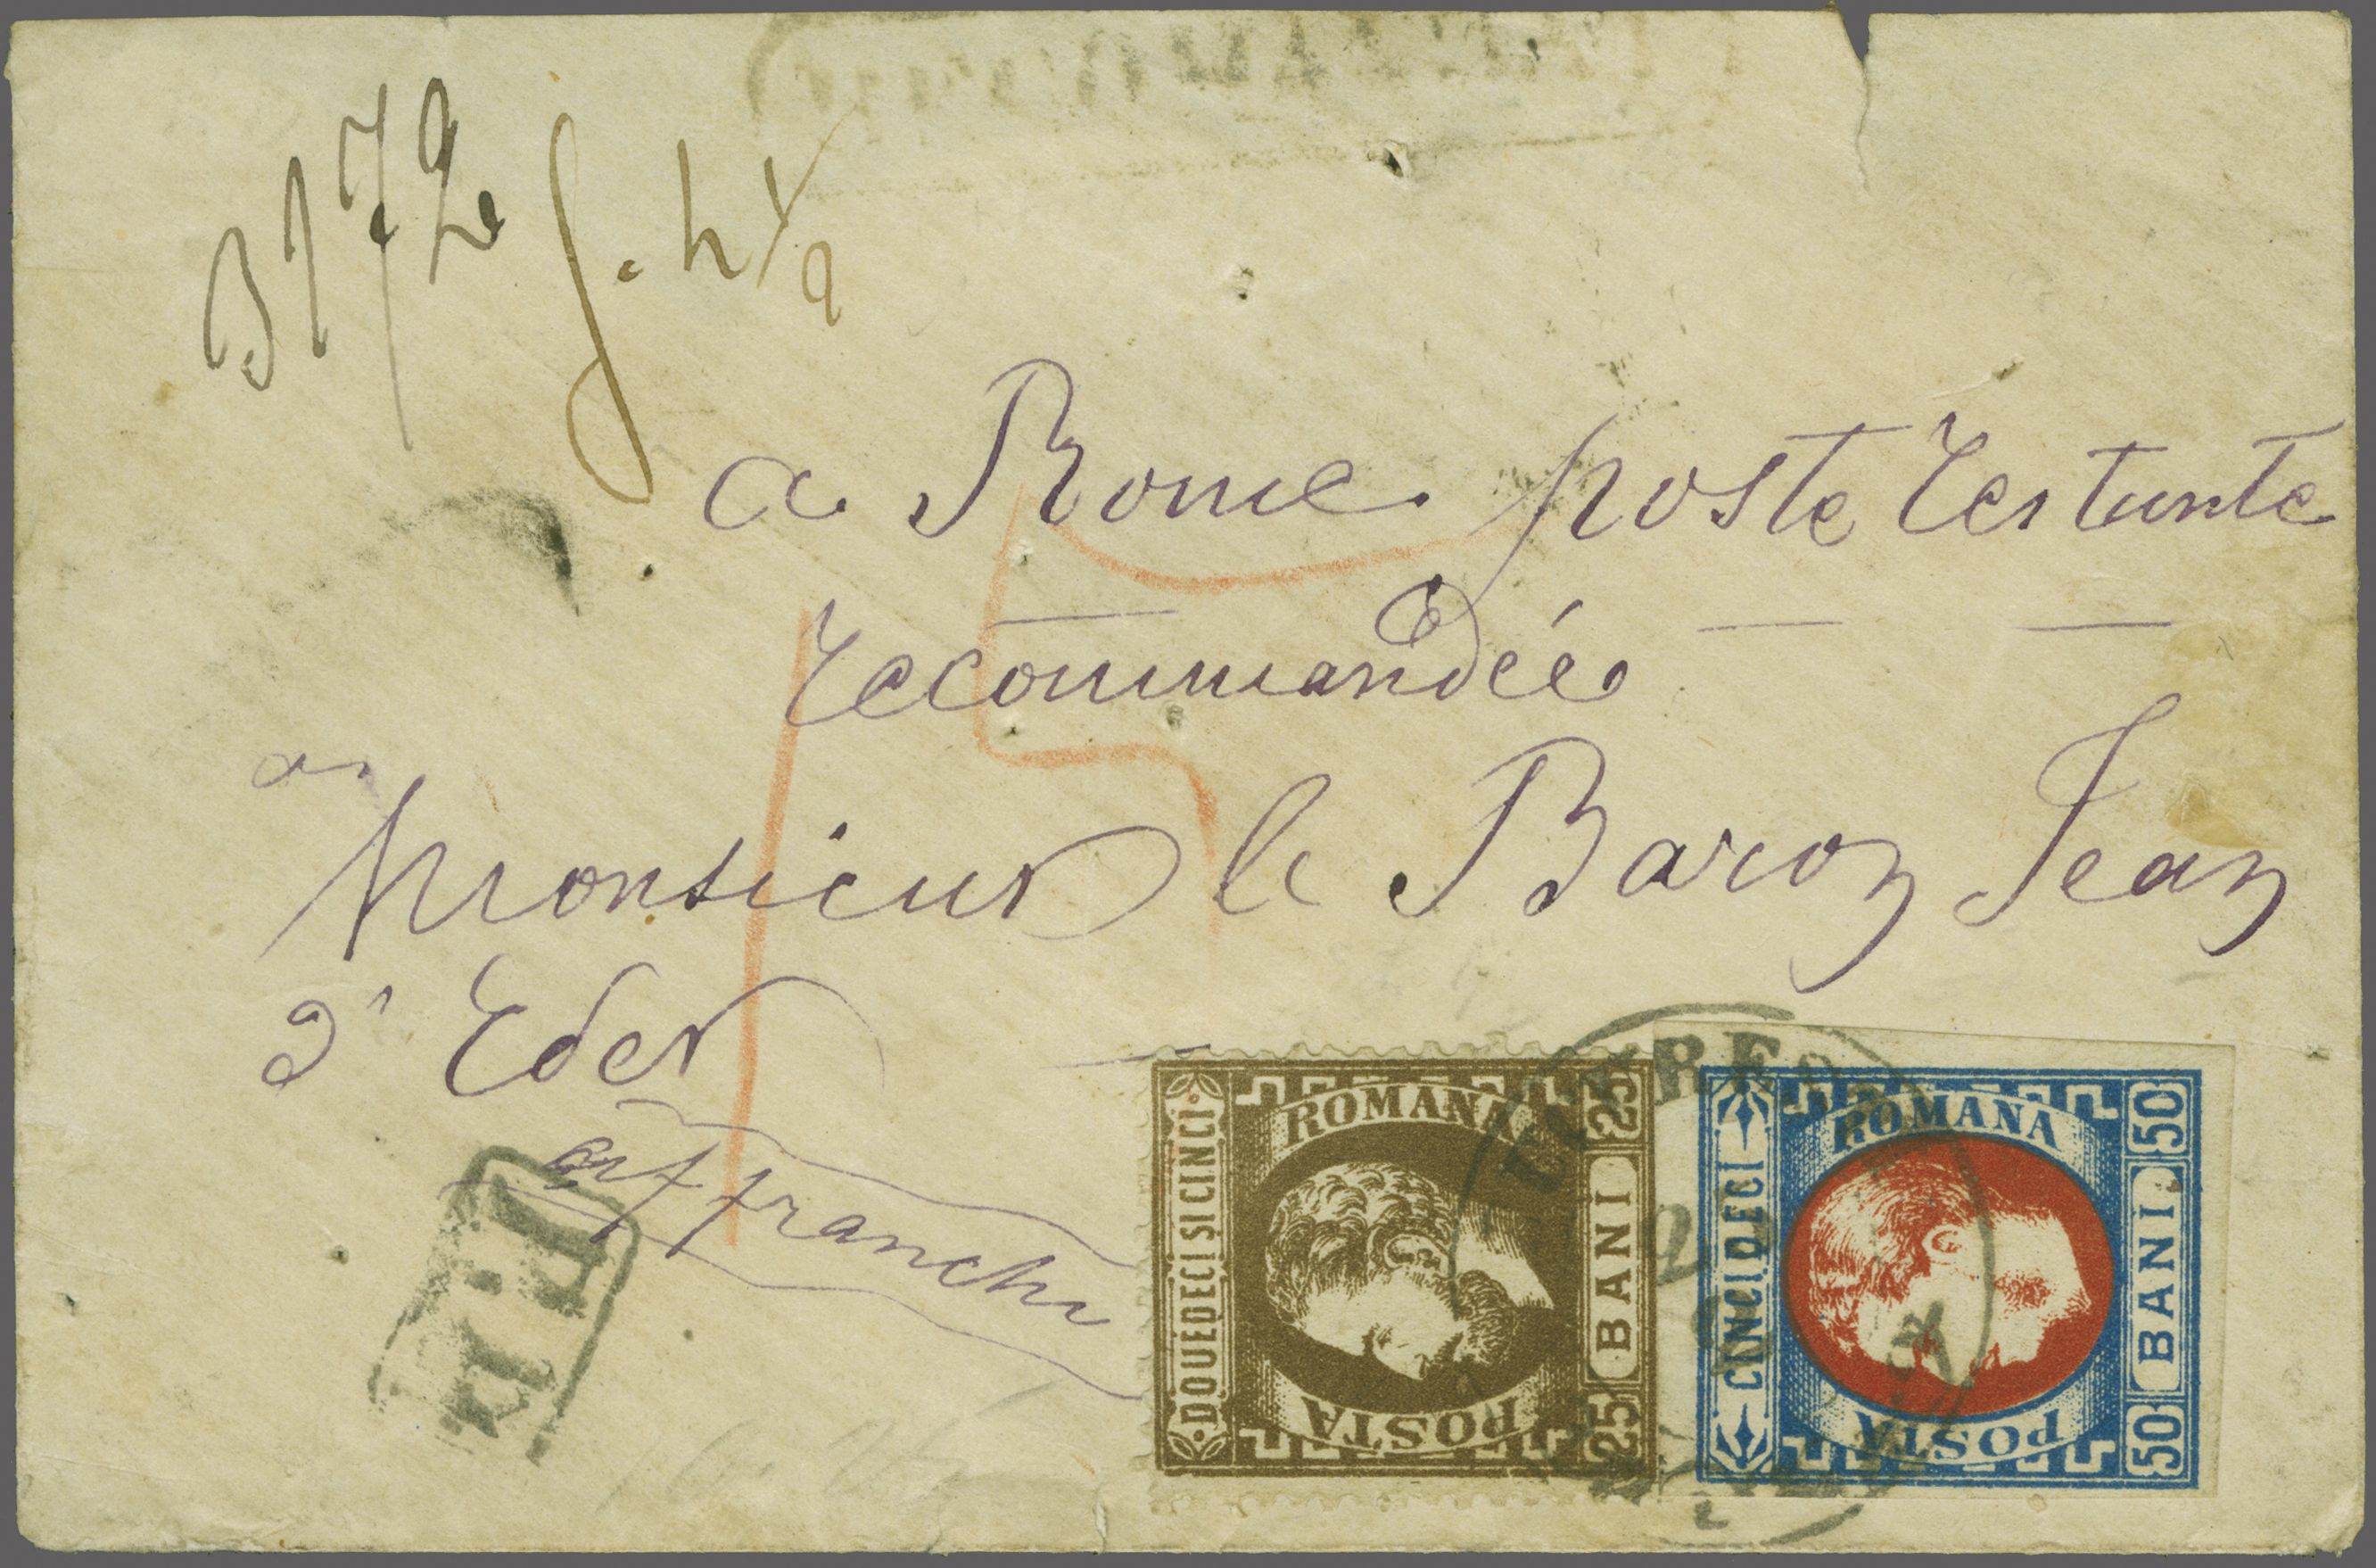 3172
a Rome poste restante
recommandée
a
Monsieur le Baron Jean
d'Eder
affranchi
P.D.
ROMANA
DOUEDECI SI CINCI
25 BANI 25
POSTA
ROMANA
CINCI DECI
50 BANI 50
POSTA